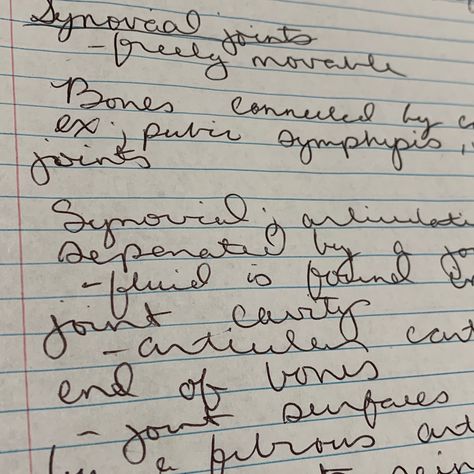 Synovial joints
- freely movable
Bones connected by
ex; pubic symphysis,
joints
Synovial; articulati
separated by a jo
- fluid is found
joint cavity
- articular cart
end of bones
- joint surfaces
a fibrous